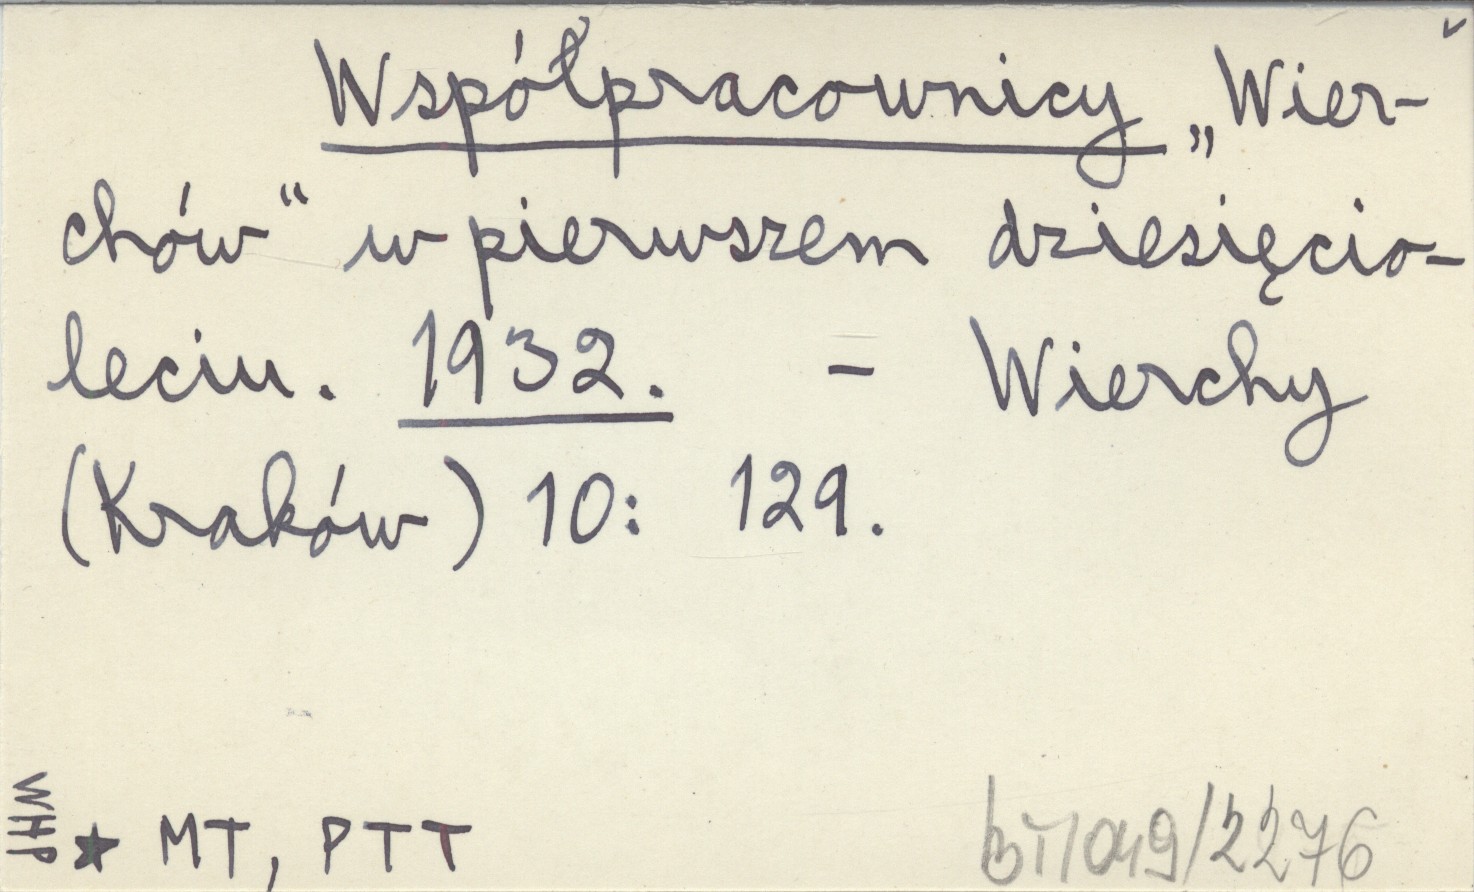 Współpracownicy „Wier-
chów“ w pierwszem dziesięcio-
leciu. 1932. – Wierchy
(Kraków) 10: 129.
WHP
★ MT, PTT
BT/049/2276